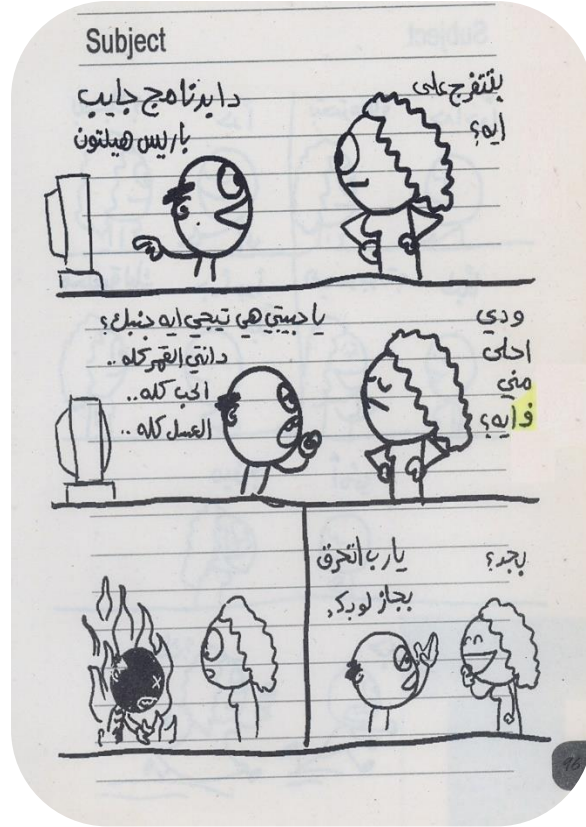 Subject
بتتفرج على
ايه؟
دا برنامج جايب
باريس هيلتون
ودي
احلى
مني
ف ايه؟
يا حبيبتي هي تيجي ايه جنبك؟
دانتي القمر كله..
الحب كله..
العسل كله..
بجد؟
يارب اتحرق
بجاز لو بكد
98